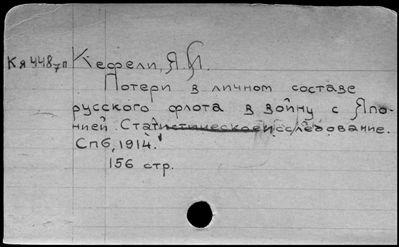 Кя448/7п Кефели, Я.И.
Потери в личном составе
русского флота в войну с Япо-
нией. Статистическое исследование.
Спб, 1914.
156 стр.